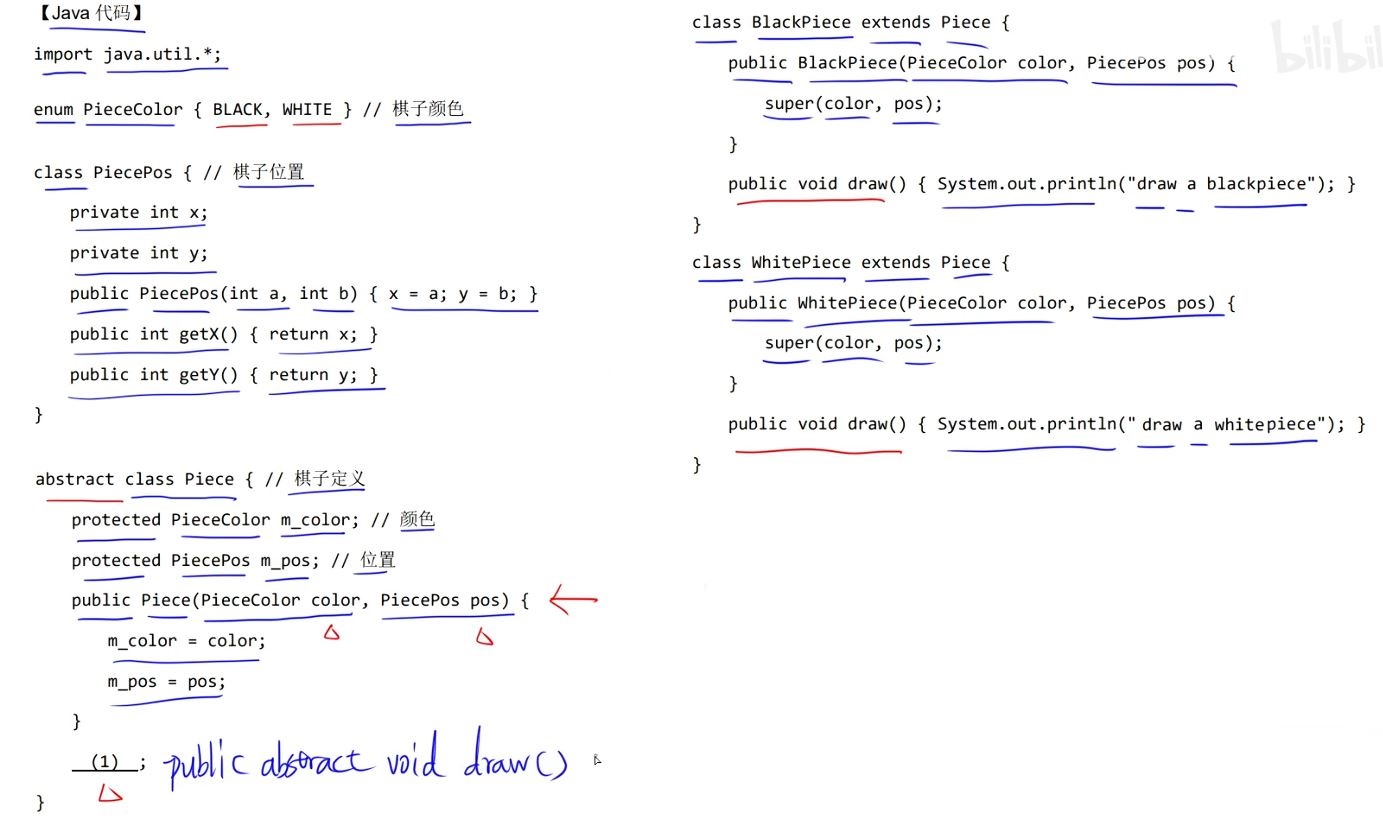 【Java 代码】
import java.util.*;
enum PieceColor { BLACK, WHITE } // 棋子颜色
class PiecePos { // 棋子位置
private int x;
private int y;
public PiecePos(int a, int b) { x = a; y = b; }
public int getX() { return x; }
public int getY() { return y; }
}
abstract class Piece { // 棋子定义
protected PieceColor m_color; // 颜色
protected PiecePos m_pos; // 位置
public Piece(PieceColor color, PiecePos pos) {
m_color = color;
m_pos = pos;
}
(1) ; public abstract void draw()
}
class BlackPiece extends Piece {
public BlackPiece(PieceColor color, PiecePos pos) {
super(color, pos);
}
public void draw() { System.out.println("draw a blackpiece"); }
}
class WhitePiece extends Piece {
public WhitePiece(PieceColor color, PiecePos pos) {
super(color, pos);
}
public void draw() { System.out.println(" draw a whitepiece"); }
}
bilibil